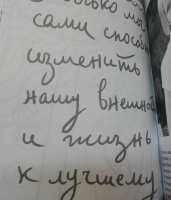 сами способны
изменить
нашу внешно
и жизнь
к лучшему